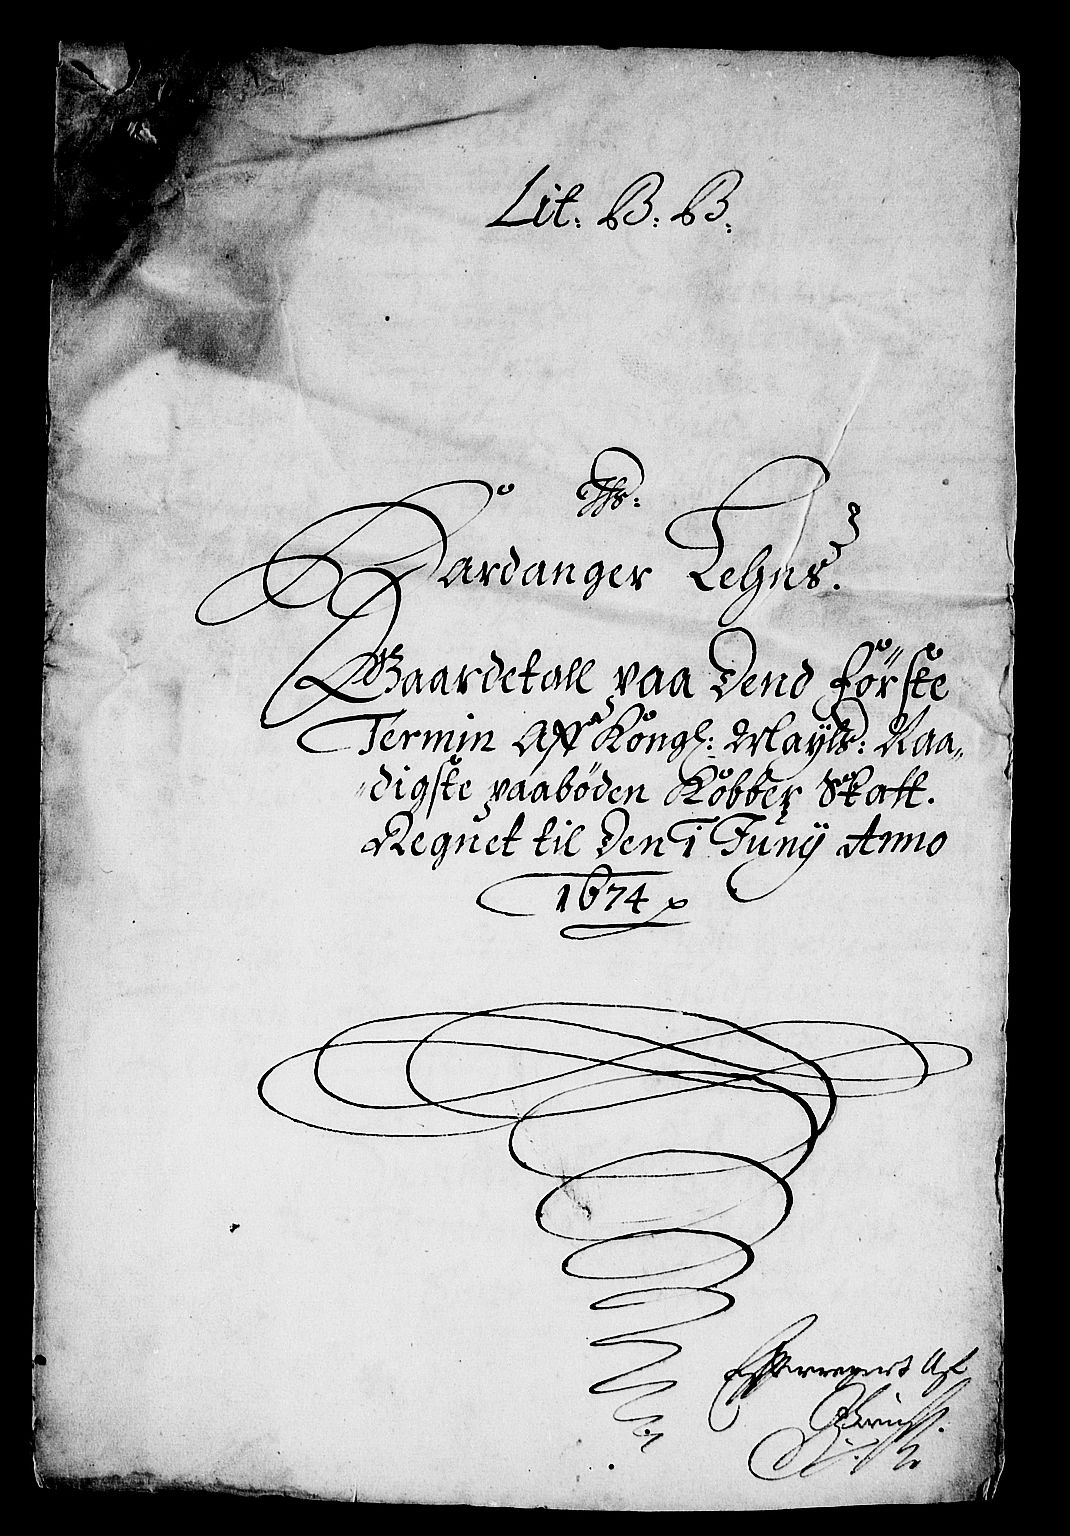 Lit: B: B:
Hardanger Lehns.
Gaardetall paa Dend första
Termin Aff Kongl: Maÿts: Naa„
digste paaböden Kobber Skatt.
Regnet til Den 1 Junÿ Anno
1674